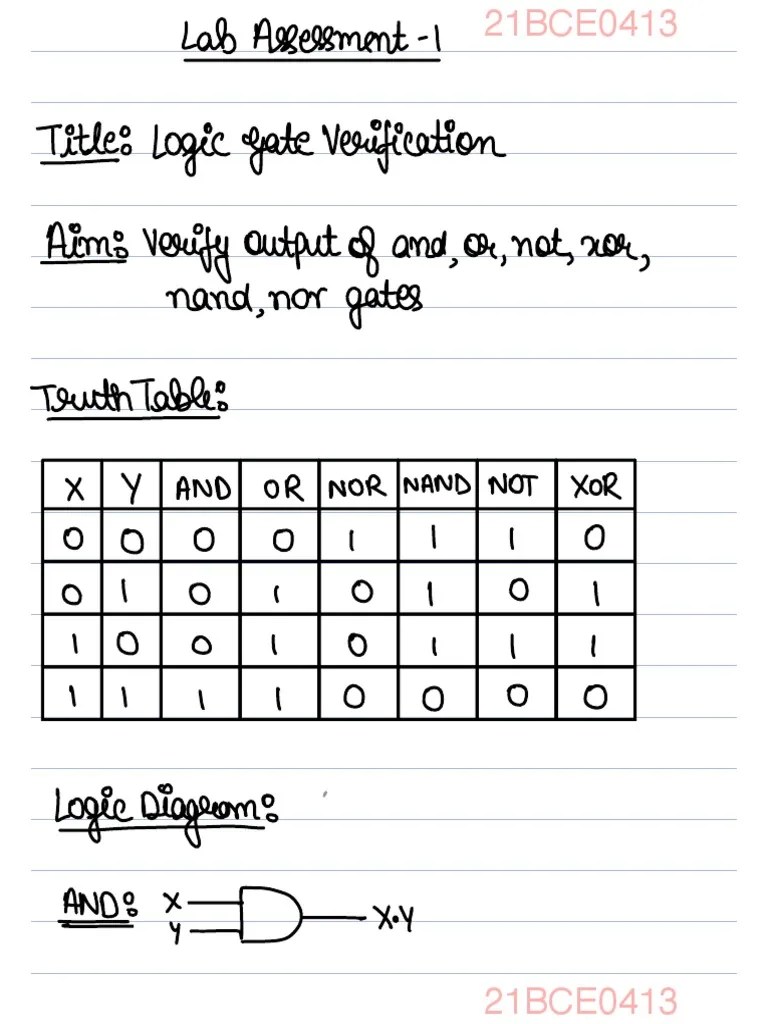 Lab Assessment-1
21BCE0413
Title: Logic gate Verification
Aim: Verify output of and, or, not, xor,
nand, nor gates
Truth Table:
X Y AND OR NOR NAND NOT XOR
0 0 0 0 1 1 1 0
0 1 0 1 0 1 0 1
1 0 0 1 0 1 1 1
1 1 1 1 0 0 0 0
Logic Diagram:
AND: X
Y
X·Y
21BCE0413